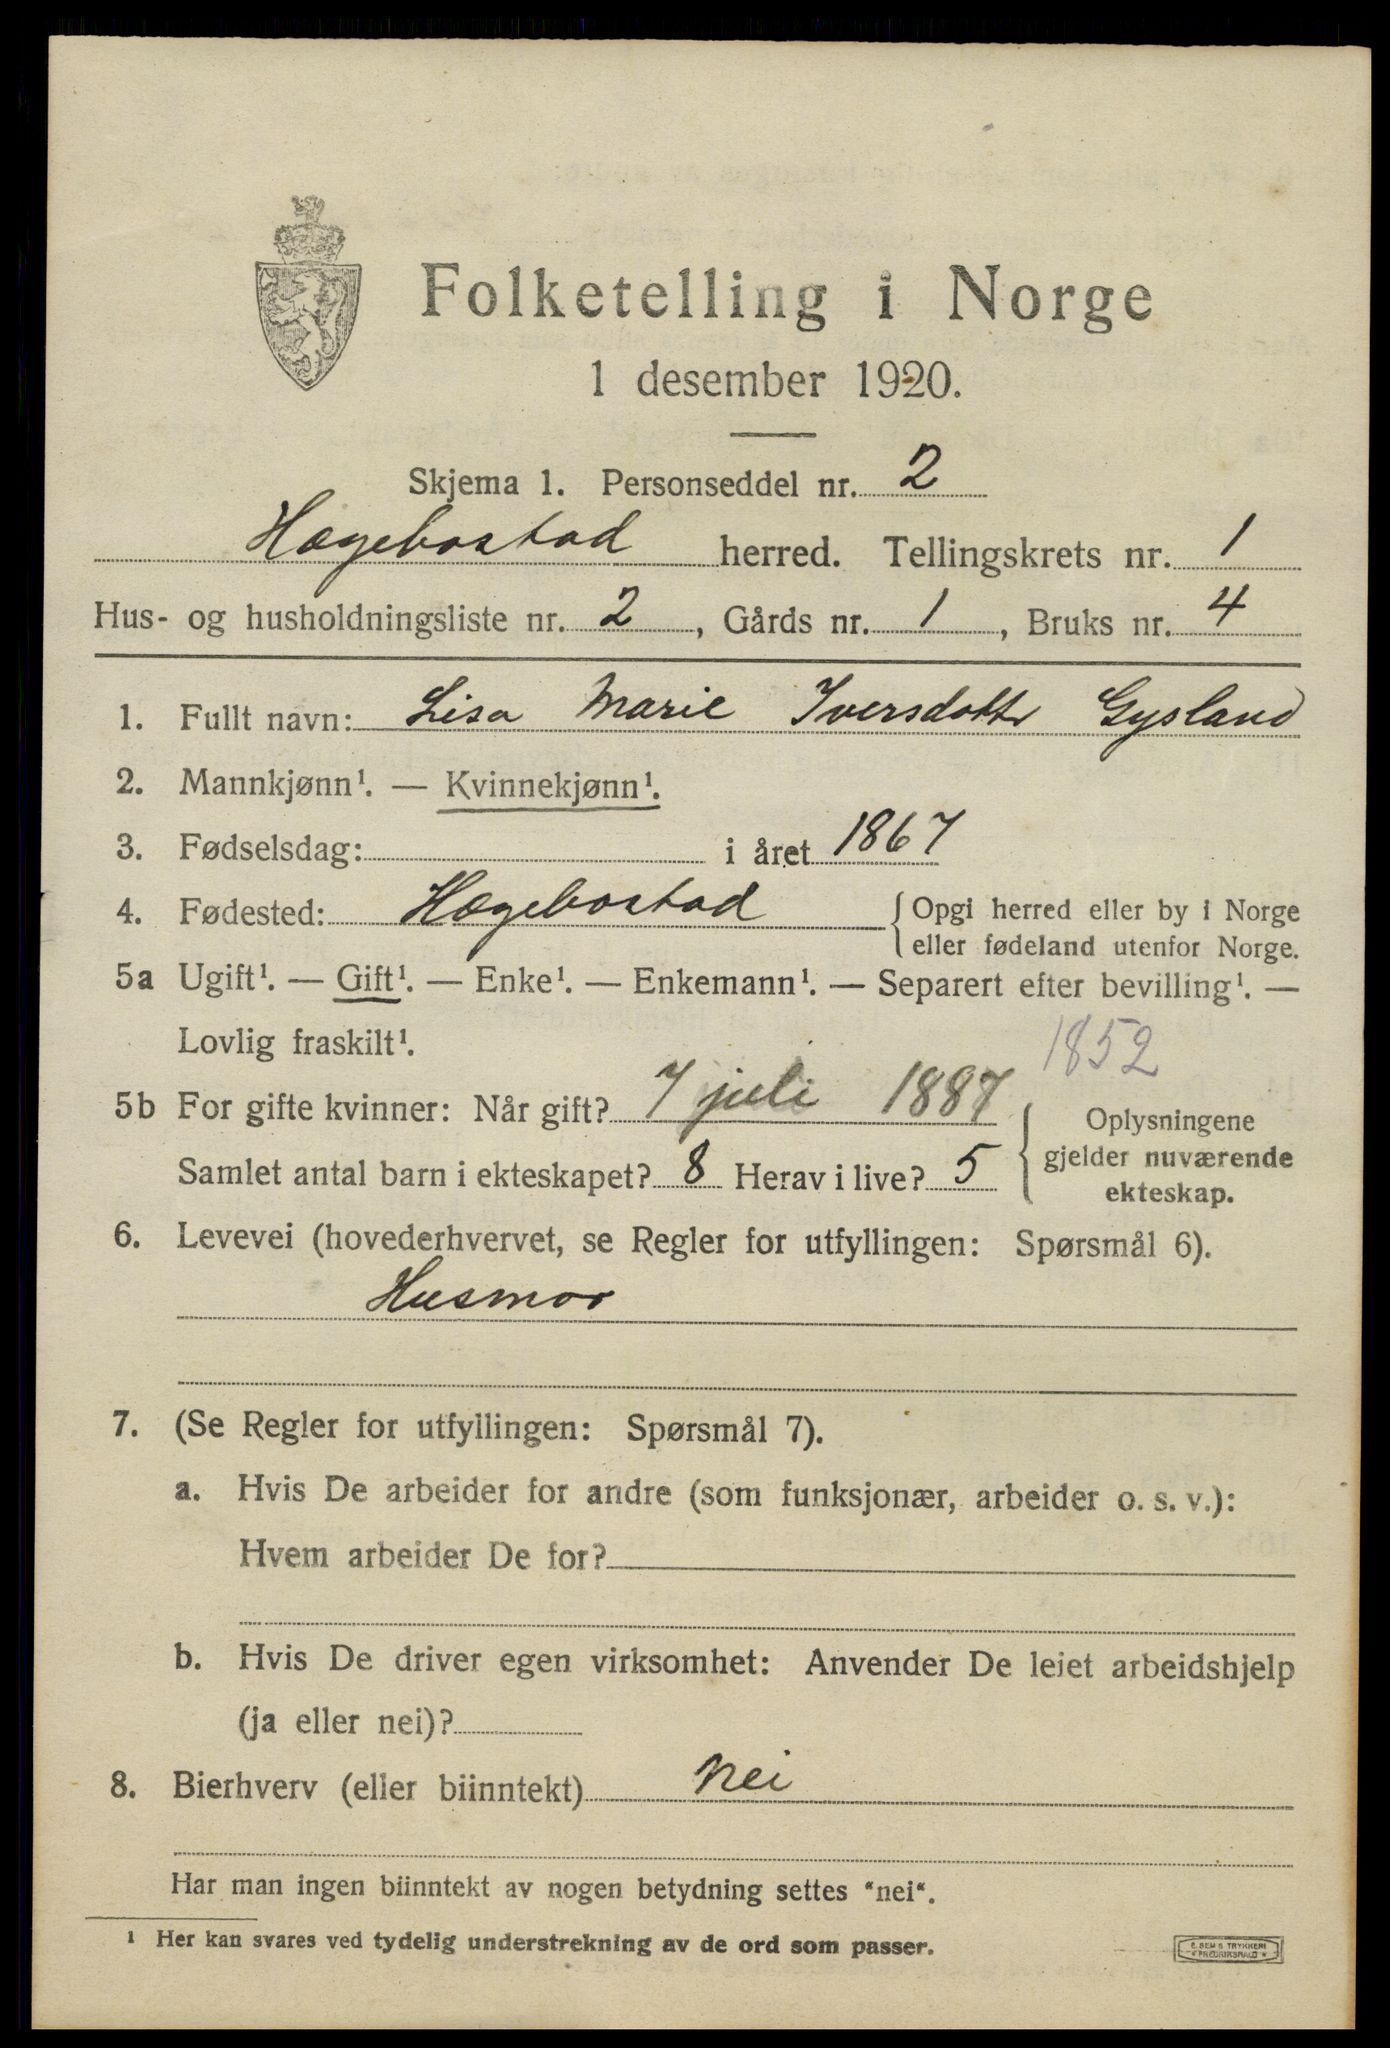 Folketelling i Norge
1 desember 1920.
Skjema 1. Personseddel nr. 2
Hægebostad herred. Tellingskrets nr. 1
Hus- og husholdningsliste nr. 2, Gårds nr. 1, Bruks nr. 4
1. Fullt navn: Lisa Marie Iversdottr Gysland
2. Mannkjønn¹. — Kvinnekjønn¹.
3. Fødselsdag: i året 1867
4. Fødested: Hægebostad { Opgi herred eller by i Norge
eller fødeland utenfor Norge.
5a Ugift¹. — Gift¹. — Enke¹. — Enkemann¹. — Separert efter bevilling¹. —
Lovlig fraskilt¹.
1852
5b For gifte kvinner: Når gift? 7 juli 1887
Samlet antal barn i ekteskapet? 8 Herav i live? 5
{ Oplysningene
gjelder nuværende
ekteskap.
6. Levevei (hovederhvervet, se Regler for utfyllingen: Spørsmål 6).
Husmor
7. (Se Regler for utfyllingen: Spørsmål 7).
a. Hvis De arbeider for andre (som funksjonær, arbeider o. s. v.):
Hvem arbeider De for?
b. Hvis De driver egen virksomhet: Anvender De leiet arbeidshjelp
(ja eller nei)?
8. Bierhverv (eller biinntekt) Nei
Har man ingen biinntekt av nogen betydning settes "nei".
¹ Her kan svares ved tydelig understrekning av de ord som passer.
E. SEMS TRYKKERI
* FREDRIKSHALD *